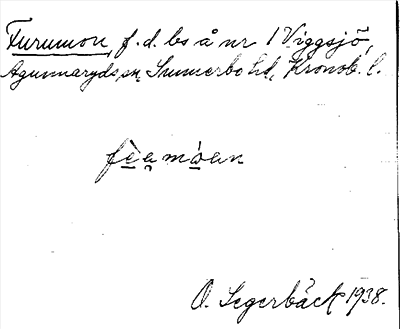 Furumon, f.d. bs å nr 1 Viggsjö,
Agunnaryds sn Sunnerbo hd, Kronob. l.
O. Segerbäck 1938.